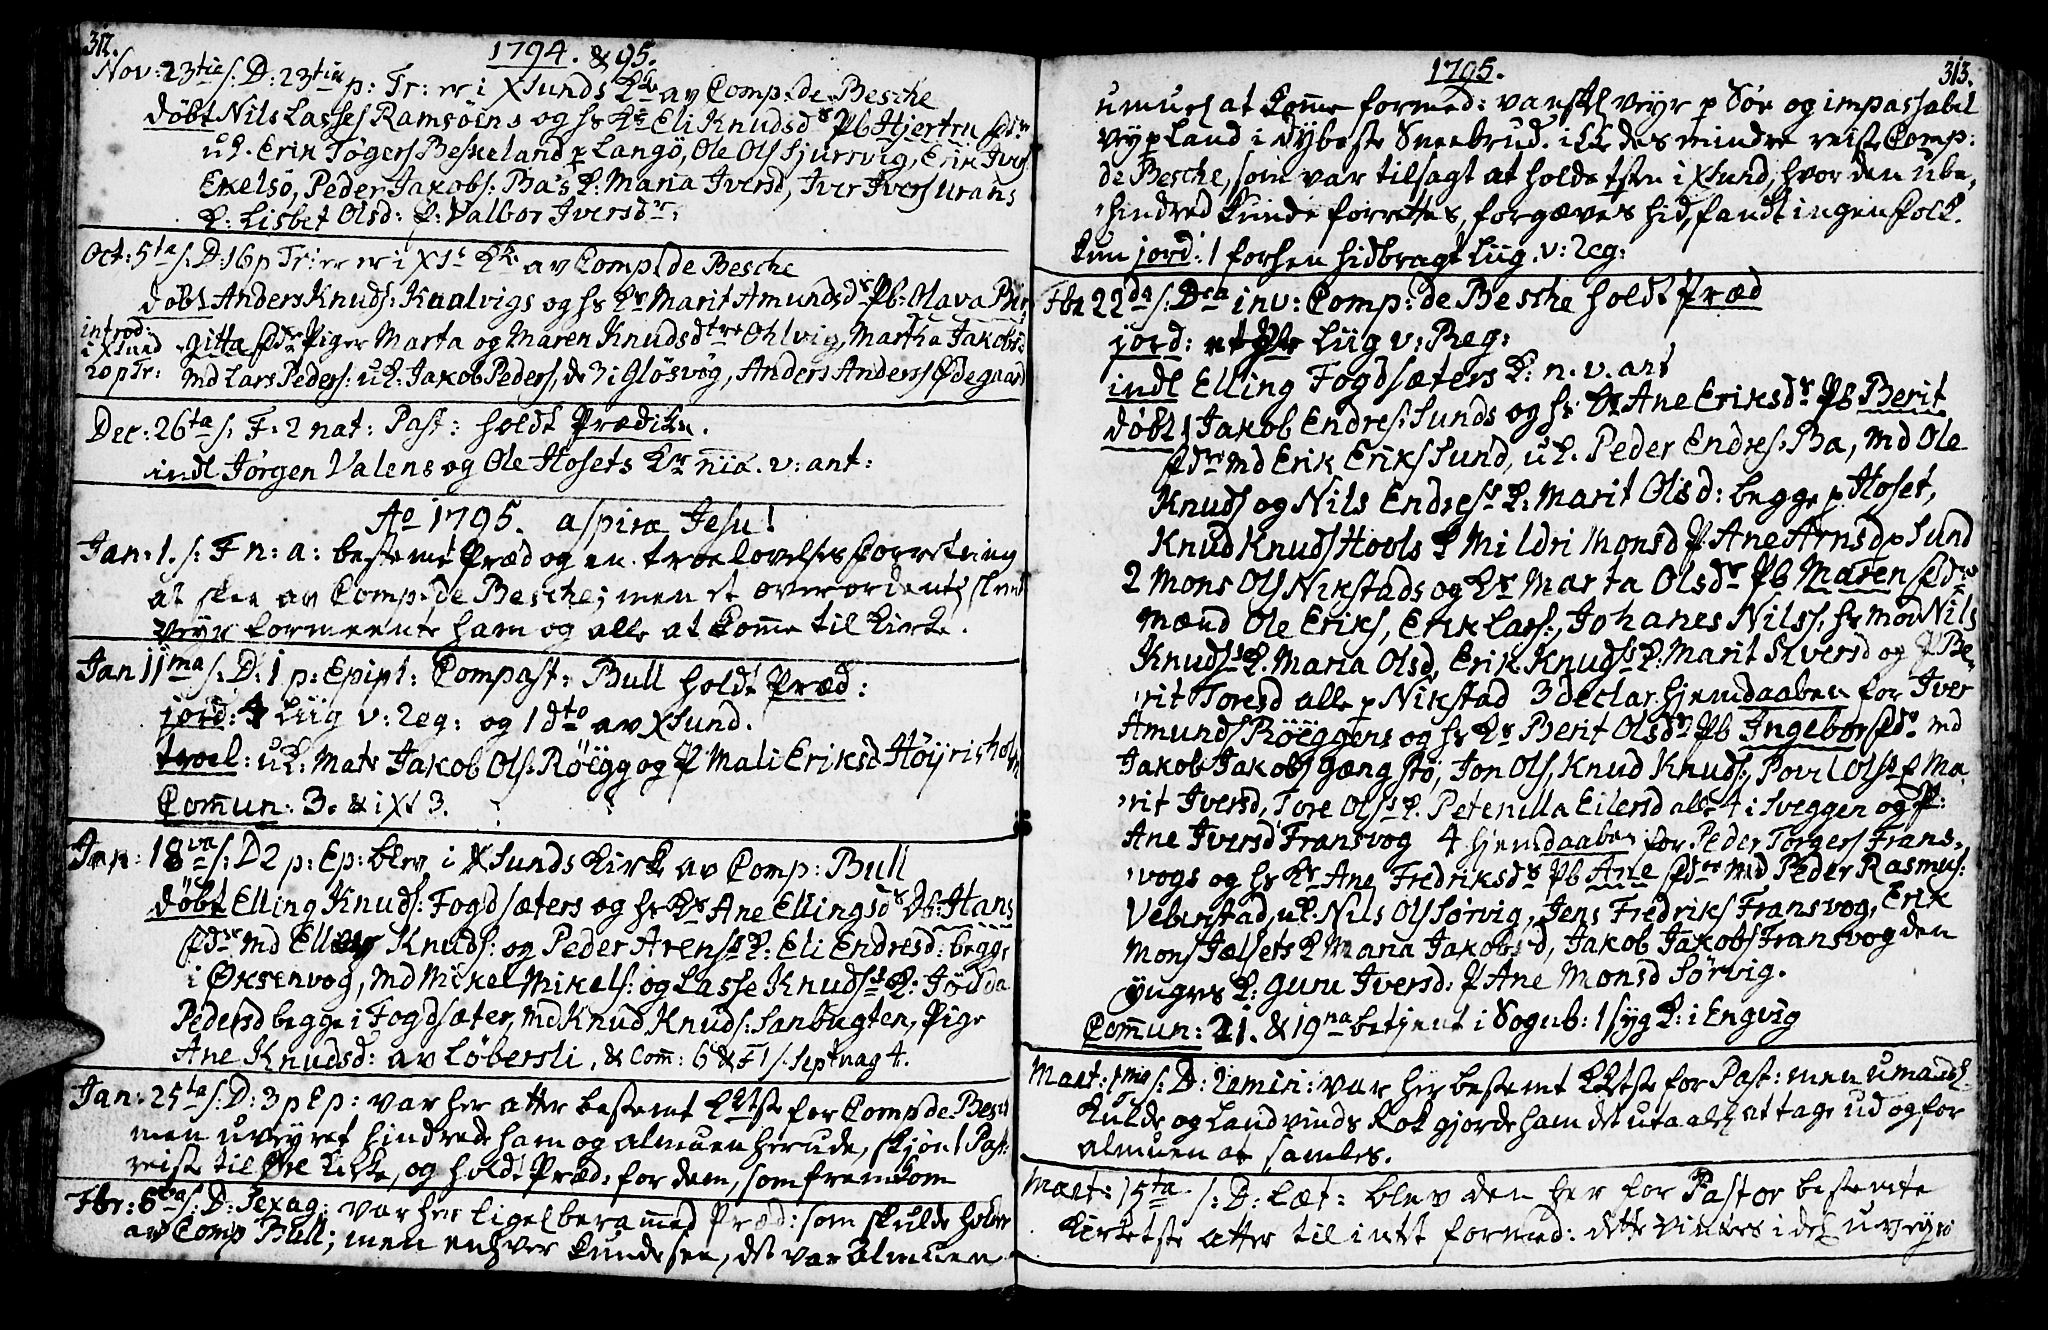 312.
1794. & 95.
Nov: 23tia s: D: 23tia p: Tr: er i XSunds Kk av Comp. de Besche
døbt Nils Lasses Ramsøens og hs Kv Eli Knudsdr Pb Hjertru fdre
uk. Erik Tøgers Beskeland p Langø, Ole Ols Sjursvig, Erik Ivers
Ekelsø, Peder Jakobs: Ba's K: Maria Iversd, Iver Ivers Urans
K: Lisbet Olsd: P: Valbor Iversdr:
Oct: 5ta s: D: 16 p Tr: er i X1s Kk av Comp de Besche
døbt Anders Knuds: Kaalvigs og hs Kv Marit Amundsdr Pb: Olava Bir
introd: i XSund 20 p Tr:
gitta fdre Piger Marta og Maren Knudsdtre Ohlvig, Martha Jakobs:
Md Lars Peders: uk: Jakob Peders, de 3 i Gløsvog, Anders Anders Ødegaard
Dec: 26ta s: F: 2 nat: Past: holdt Prædiken.
indl Jørgen Valens og Ole Hosets Kvr nia. v: ant:
Ao 1795. aspira Jesu!
Jan: 1. s: F n: a: bestemt Præd og en troelovelses forretning
at skee av Comp. de Besche; men et overordentl slemt
veyr formeente ham og alle at komme til kirke.
Jan 11ma s: D: 1 p: Epiph: Compast: Bull holdt Præd:
jord: 4 Liig v: Leg: og 1 dto av XSund.
troel: uk: Mats Jakob Ols: Röegg og P Mali Eriksd Höyrisholm
Com̄un: 3. & i Xs 3.
Jan: 18va s: D 2 p: Ep: blev i XSunds Kirke av Comp: Bull
døbt Elling Knuds: Fogdsæters og hs Kv Ane Ellingsdr Db: Hans
fdre Md Elling Knuds: og Peder Arens K: Eli Endresd: begge
i Øksenvog, Md Mikel Mikels: og Lasse Knudss K: Jødda
Pedersd begge i Fogdsæter, Md Knud Knuds: Sanbugten, Pige
Ane Knudsd: av Løbersli, & Com̄: 6 & F 1 s. Septuag 4.
Jan: 25ta s: D: 3 p Ep: var her atter bestemt KKtste for Comp de Besche
men uveyret hindrede ham og almuen herude, skjønt Past:
reiste til Øre Kirke, og holdt Præd: for dem, som fremkom
Fbr: 8va s: D: Sexag: var her ligel beram̄ed Præd: som skulde holdes
av Comp Bull; men enhver kunde see, det var Almuen
1795.
313.
umuel at kom̄e formed: vanskl veyr p Søe og impassabel
vey p Land i dybeste Sneebrud. ikke des mindre reiste Comp:
de Besche, som var tilsagt at holde tste i XSund, hvor den ube,
hindred kunde forrettes, forgæves hid, fandt ingen folk.
kun jord: 1 forhen hidbragt Liig. v: Leg:
Fbr 22da s: Dca inv: Comp: de Besche holdt Præd
jord: Liig v: Reg:
indl Elling Fogdsæters K: n. v. ant
døbt 1 Jakob Endres: Sunds og hs Kv Ane Eriksdr Pb Berit
fdre Md Erik Eriks Sund, uk. Peder Endres: Ba, Md Ole
Knuds og Nils Endress K: Marit Olsd: begge p Hoset,
Knud Knuds Hools P Mildri Monsd P Ane Arnsd p Sund
2 Mons Ols Nikstads og Kv Marta Olsdr Pb Maren fdre
Mænd Ole Eriks, Erik Lass:, Johanes Nilss, hs Mod Nils
Knudss K. Maria Olsd, Erik Knudss K: Marit Sversd og P Be,
rit Toresd alle p Nikstad 3 declar: hjemdaaben for Iver
Amunds Röeggens og hs Kv Berit Olsdr Pb Ingebor fdre Md
Jakob Jakobs Gangstø, Jon Ols, Knud Knuds:, Povl Ols P Ma,
rit Iversd, Tore Olss K. Petenilla Eilersd alle 4 i Sveggen og P:
Ane Iversd Fransvog 4 hjemdaaben for Peder Torgers Frans,
vogs og hs Kv Ane Fredriksdr Pb Ane fdre Md Peder Rasmus:
Vebenstad, uk. Nils Ols Sørvig, Jens Fredriks Fransvog, Erik
Mons Jælsets K Maria Jakobsd, Jakob Jakobs Fransvog den
yngres K: Guru Iversd: P Ane Monsd Sørvig.
Com̄un: 21. & 19na betjent i Sognb: 1 syg K: i Engvig
Mart: 1ma s: D: 2 emin: var her bestemt KKtste for Past: men umaadel
Kulde og Landvinds Kok gjorde ham det utaal at tage ud og for
almuen at samles.
Mart: 15ta s: D: Læt: blev den her for Pastor bestemte
Kirketste atter til intet formed: dette vinters idel uveyr